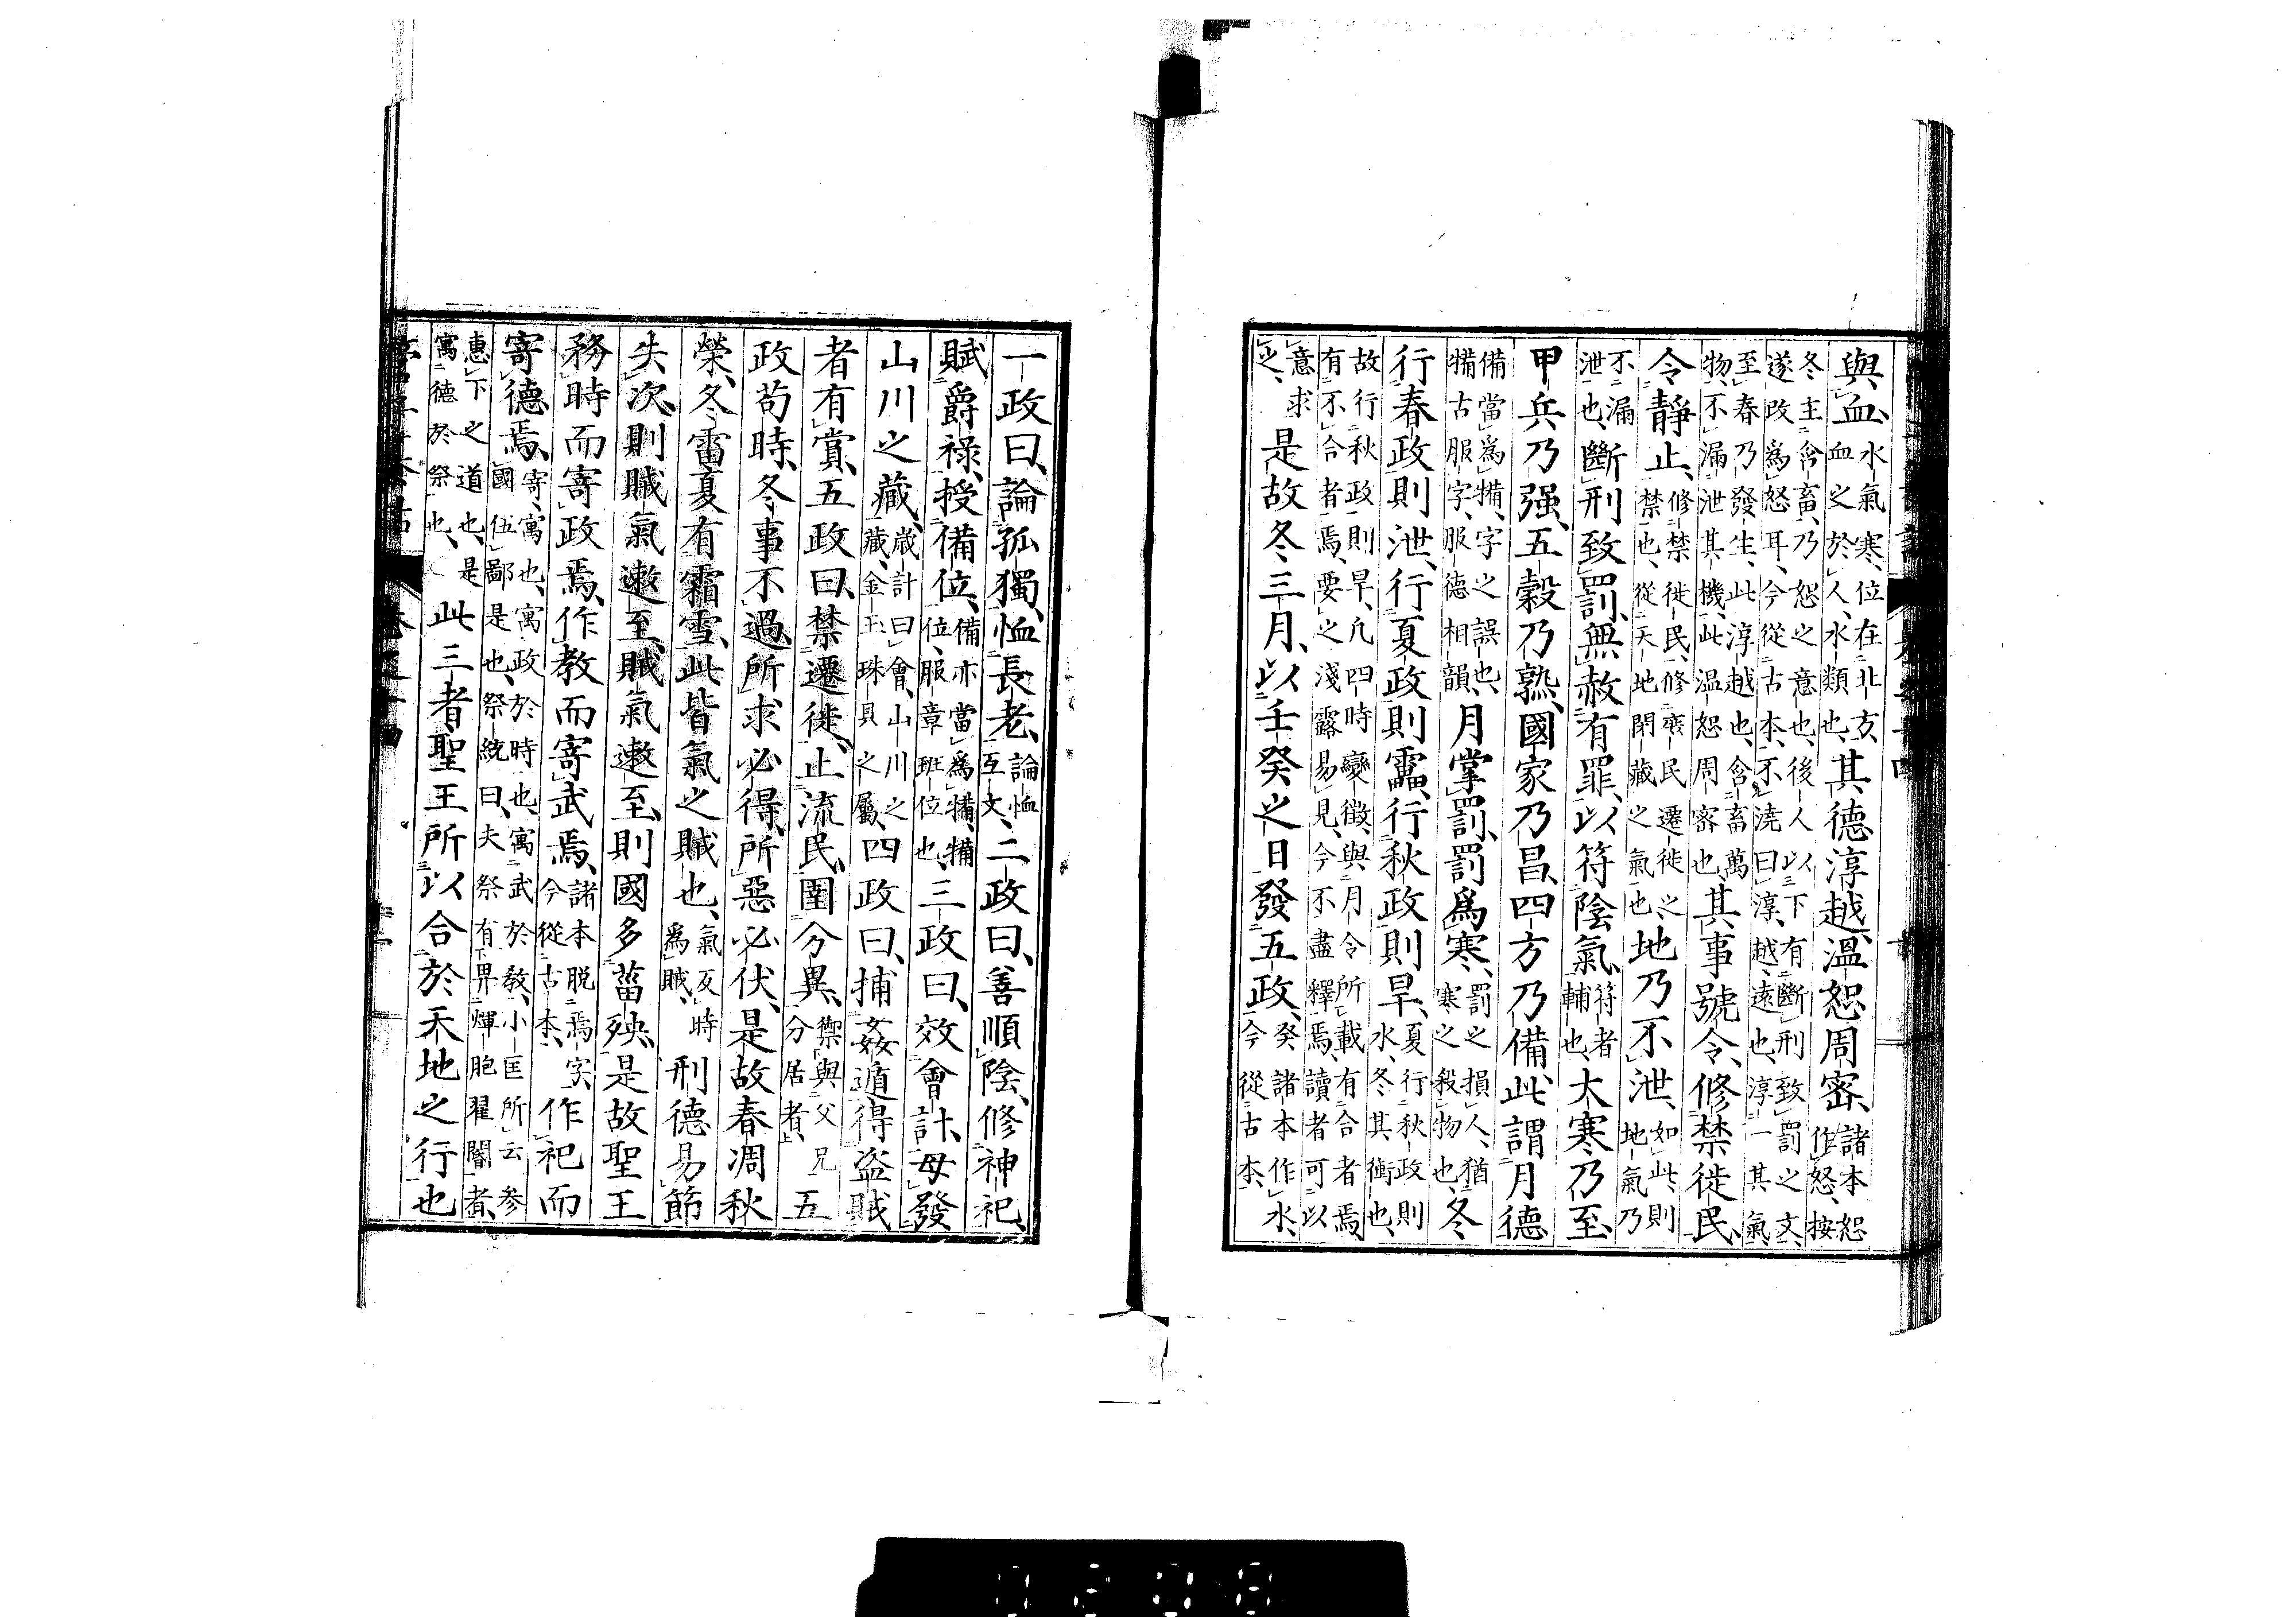 與血、水氣寒、位在北方、血之於人、水類也、其德淳越、溫恕周密、諸本恕作怒、按
冬主含畜、乃恕之意也、後人以下有斷刑致罰之文、遂改爲怒耳、今從古本、不澆曰淳、越、遠也、淳一其氣、
至春乃發生、此淳越也、含畜萬物、不漏泄其機、此温恕周密也、其事號令、修禁徙民、
令靜止、修禁徙民、修寡民遷徙之禁也、從天地閉藏之氣也、地乃不泄、如此、則地氣乃
不漏泄也、斷刑致罰、無赦有罪、以符陰氣、符者輔也、大寒乃至、
甲兵乃强、五穀乃熟、國家乃昌、四方乃備、此謂月德
備當爲犕、字之誤也、犕古服字、服德相韻、月掌罰、罰爲寒、罰之損人、猶寒之殺物也、冬
行春政則泄、行夏政則靁、行秋政則旱、夏行秋政則水、冬其衝也、
故行秋政則旱、凡四時變徵、與月令所載有合者焉、有不合者焉、要之淺露易見、今不盡釋焉、讀者可以
意求之、是故冬三月、以壬癸之日發五政、癸諸本作水、今從古本、
一政曰、論孤獨、恤長老、論恤互文、二政曰、善順陰、修神祀、
賦爵祿、授備位、備亦當爲犕、犕位、服章班位也、三政曰、效會計、毋發
山川之藏、歲計曰會、山川之藏、金玉珠貝之屬、四政曰、捕姦遁得盜賊
者有賞、五政曰、禁遷徙、止流民、圉分異、禦與父兄分居者、五
政苟時、冬事不過、所求必得、所惡必伏、是故春凋秋
榮、冬雷夏有霜雪、此皆氣之賊也、氣反時爲賊、刑德易節
失次、則賊氣遬至、賊氣遬至、則國多菑殃、是故聖王
務時而寄政焉、作教而寄武焉、諸本脱焉字、今從古本、作祀而
寄德焉、寄、寓也、寓政於時也、寓武於教、小匡所云參國伍鄙是也、祭統曰、夫祭有畀煇胞翟閽者、
惠下之道也、是寓德於祭也、此三者、聖王所以合於天地之行也